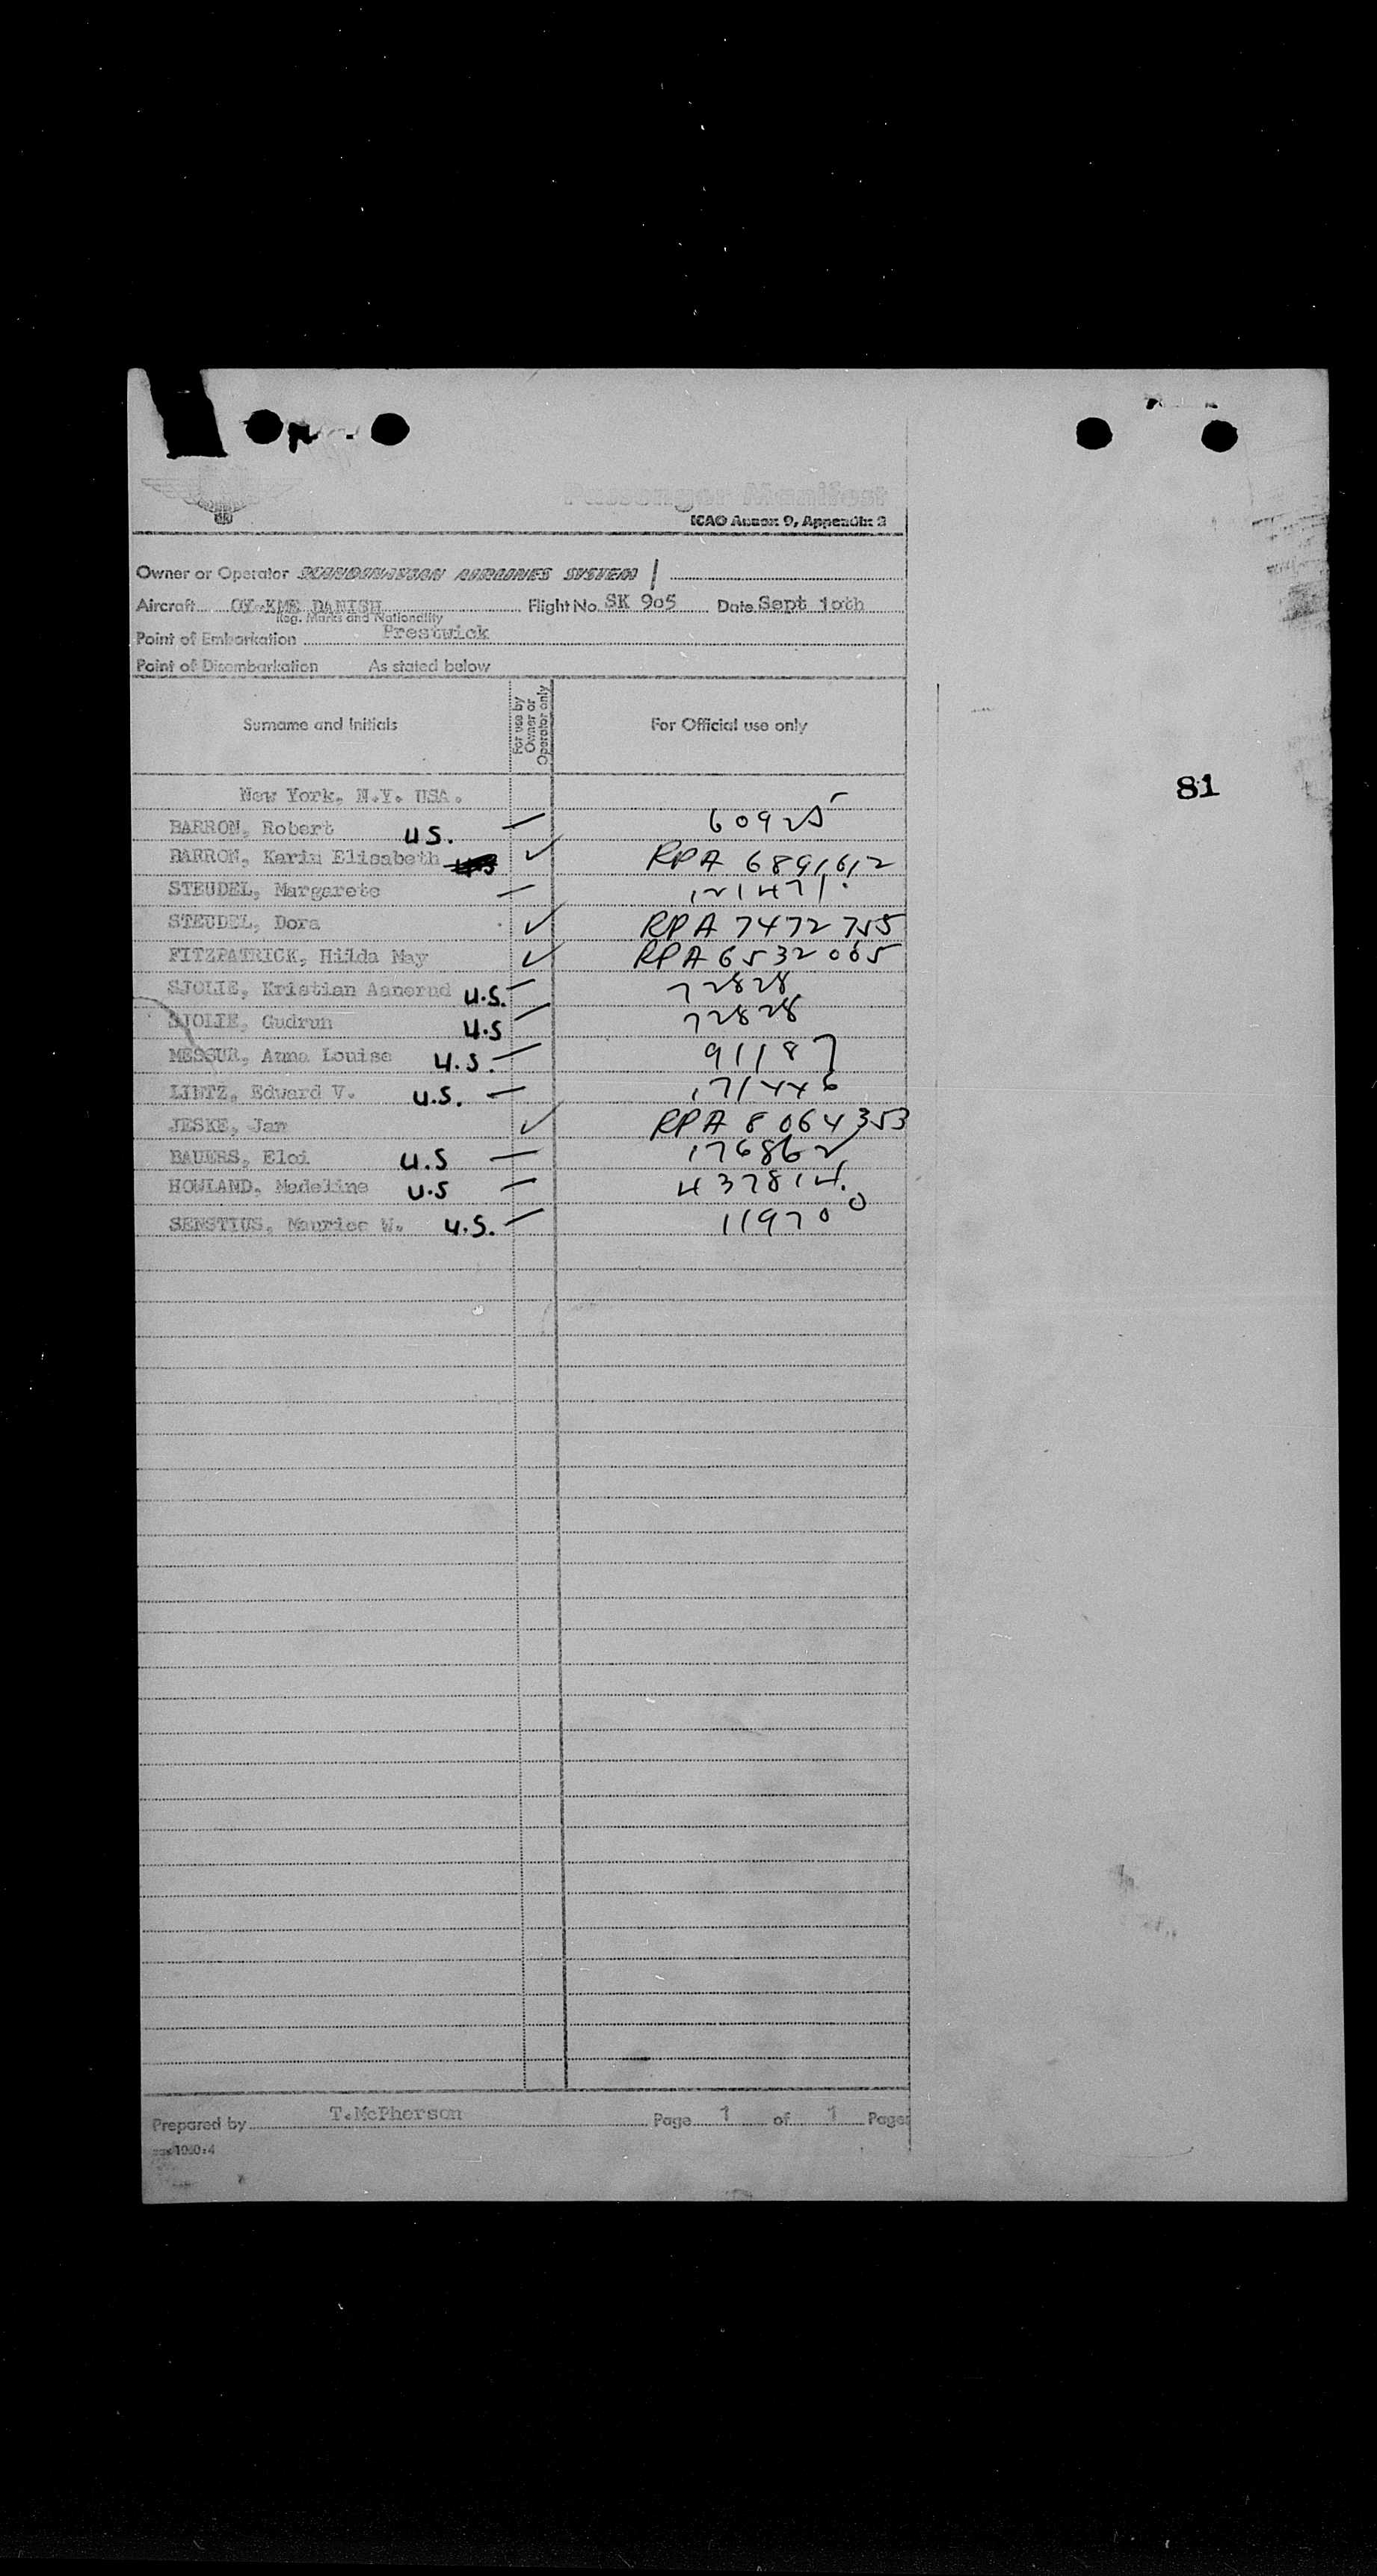 Passenger Manifest
ICAO Annex 9, Appendix 3
Owner or Operator SCANDINAVIAN AIRLINES SYSTEM
Aircraft OY-KME DANISH Flight No. SK 905 Date Sept 10th
Reg. Marks and Nationality
Point of Embarkation Prestwick
Point of Disembarkation As stated below
Surname and Initials For use by Owner or Operator only For Official use only
New York, N.Y. USA.
81
BARRON, Robert U.S. 60925
BARRON, Karin Elisabeth RPA 6891612
STEUDEL, Margarete 121471
STEUDEL, Dora ✓ RPA 7472755
FITZPATRICK, Hilda May ✓ RPA 6532005
SJOLIE, Kristian Aanerud U.S. 72828
SJOLIE, Gudrun U.S 72828
MESSUR, Anna Louise U.S. 91187
LINTZ, Edward V. U.S. 171446
JESKE, Jan ✓ RPA 8064353
BAUERS, Eloi U.S 176862
HOWLAND, Madeline U.S 437814.
SENSTIUS, Maurice W. U.S. 119700
Prepared by T.McPherson Page 1 of 1 Pages